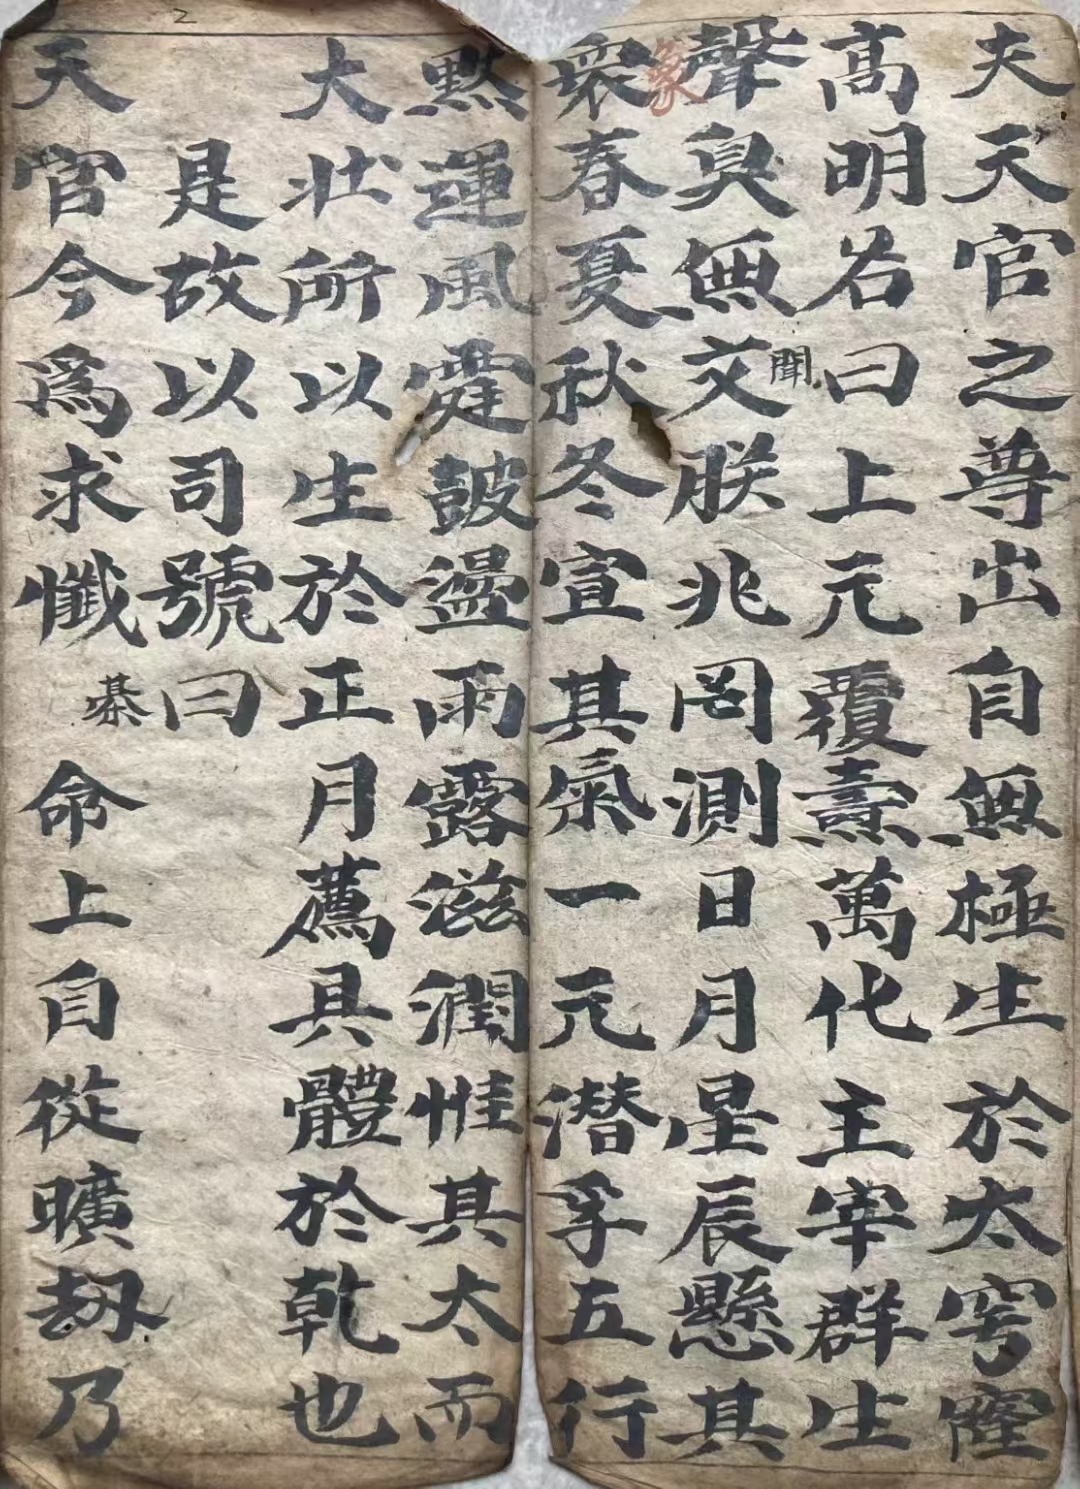 夫天官之尊出自無極生於太穹窿
高明名曰上元覆燾萬代主宰群生
聲臭無文聞朕兆罔測日月星辰懸其
象
衆春夏秋冬宣其氣一元潜孚五行
黙運風霆鼓盪雨露滋潤惟其太而
大壮所以生於正月薦具體於乾也
是故以司號曰
天官今為求懺綦命上自從曠劫乃
2